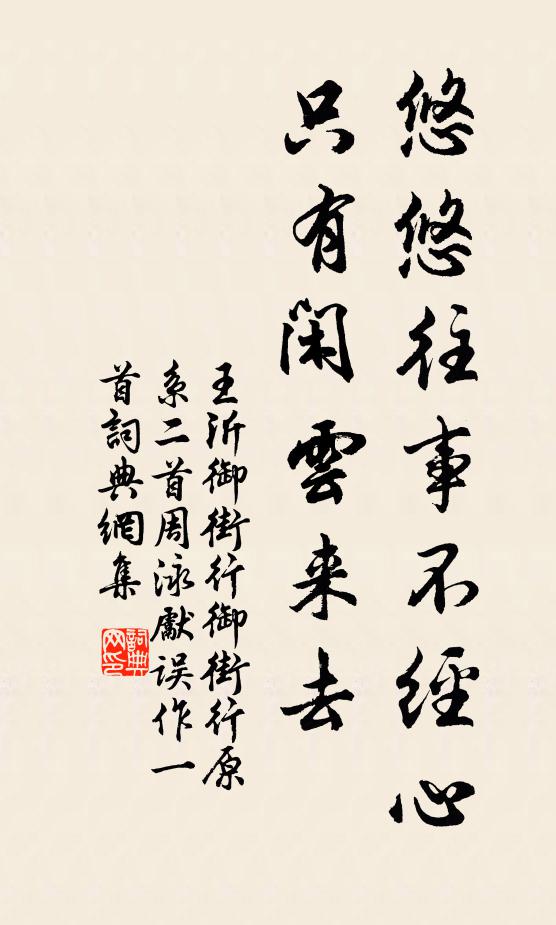 悠悠往事不經心
只有閑雲来去
王沂御街行御街行原
系二首周泳獻误作一
首詞典網集
詞典网印